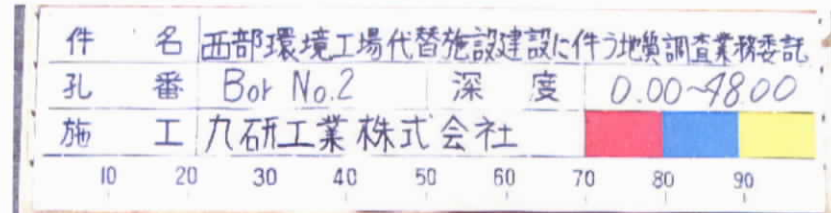 件 名 西部環境工場代替施設建設に伴う地質調査業務委託
孔 番 Bor No.2 深 度 0.00~48.00
施 工 九研工業株式会社
10 20 30 40 50 60 70 80 90